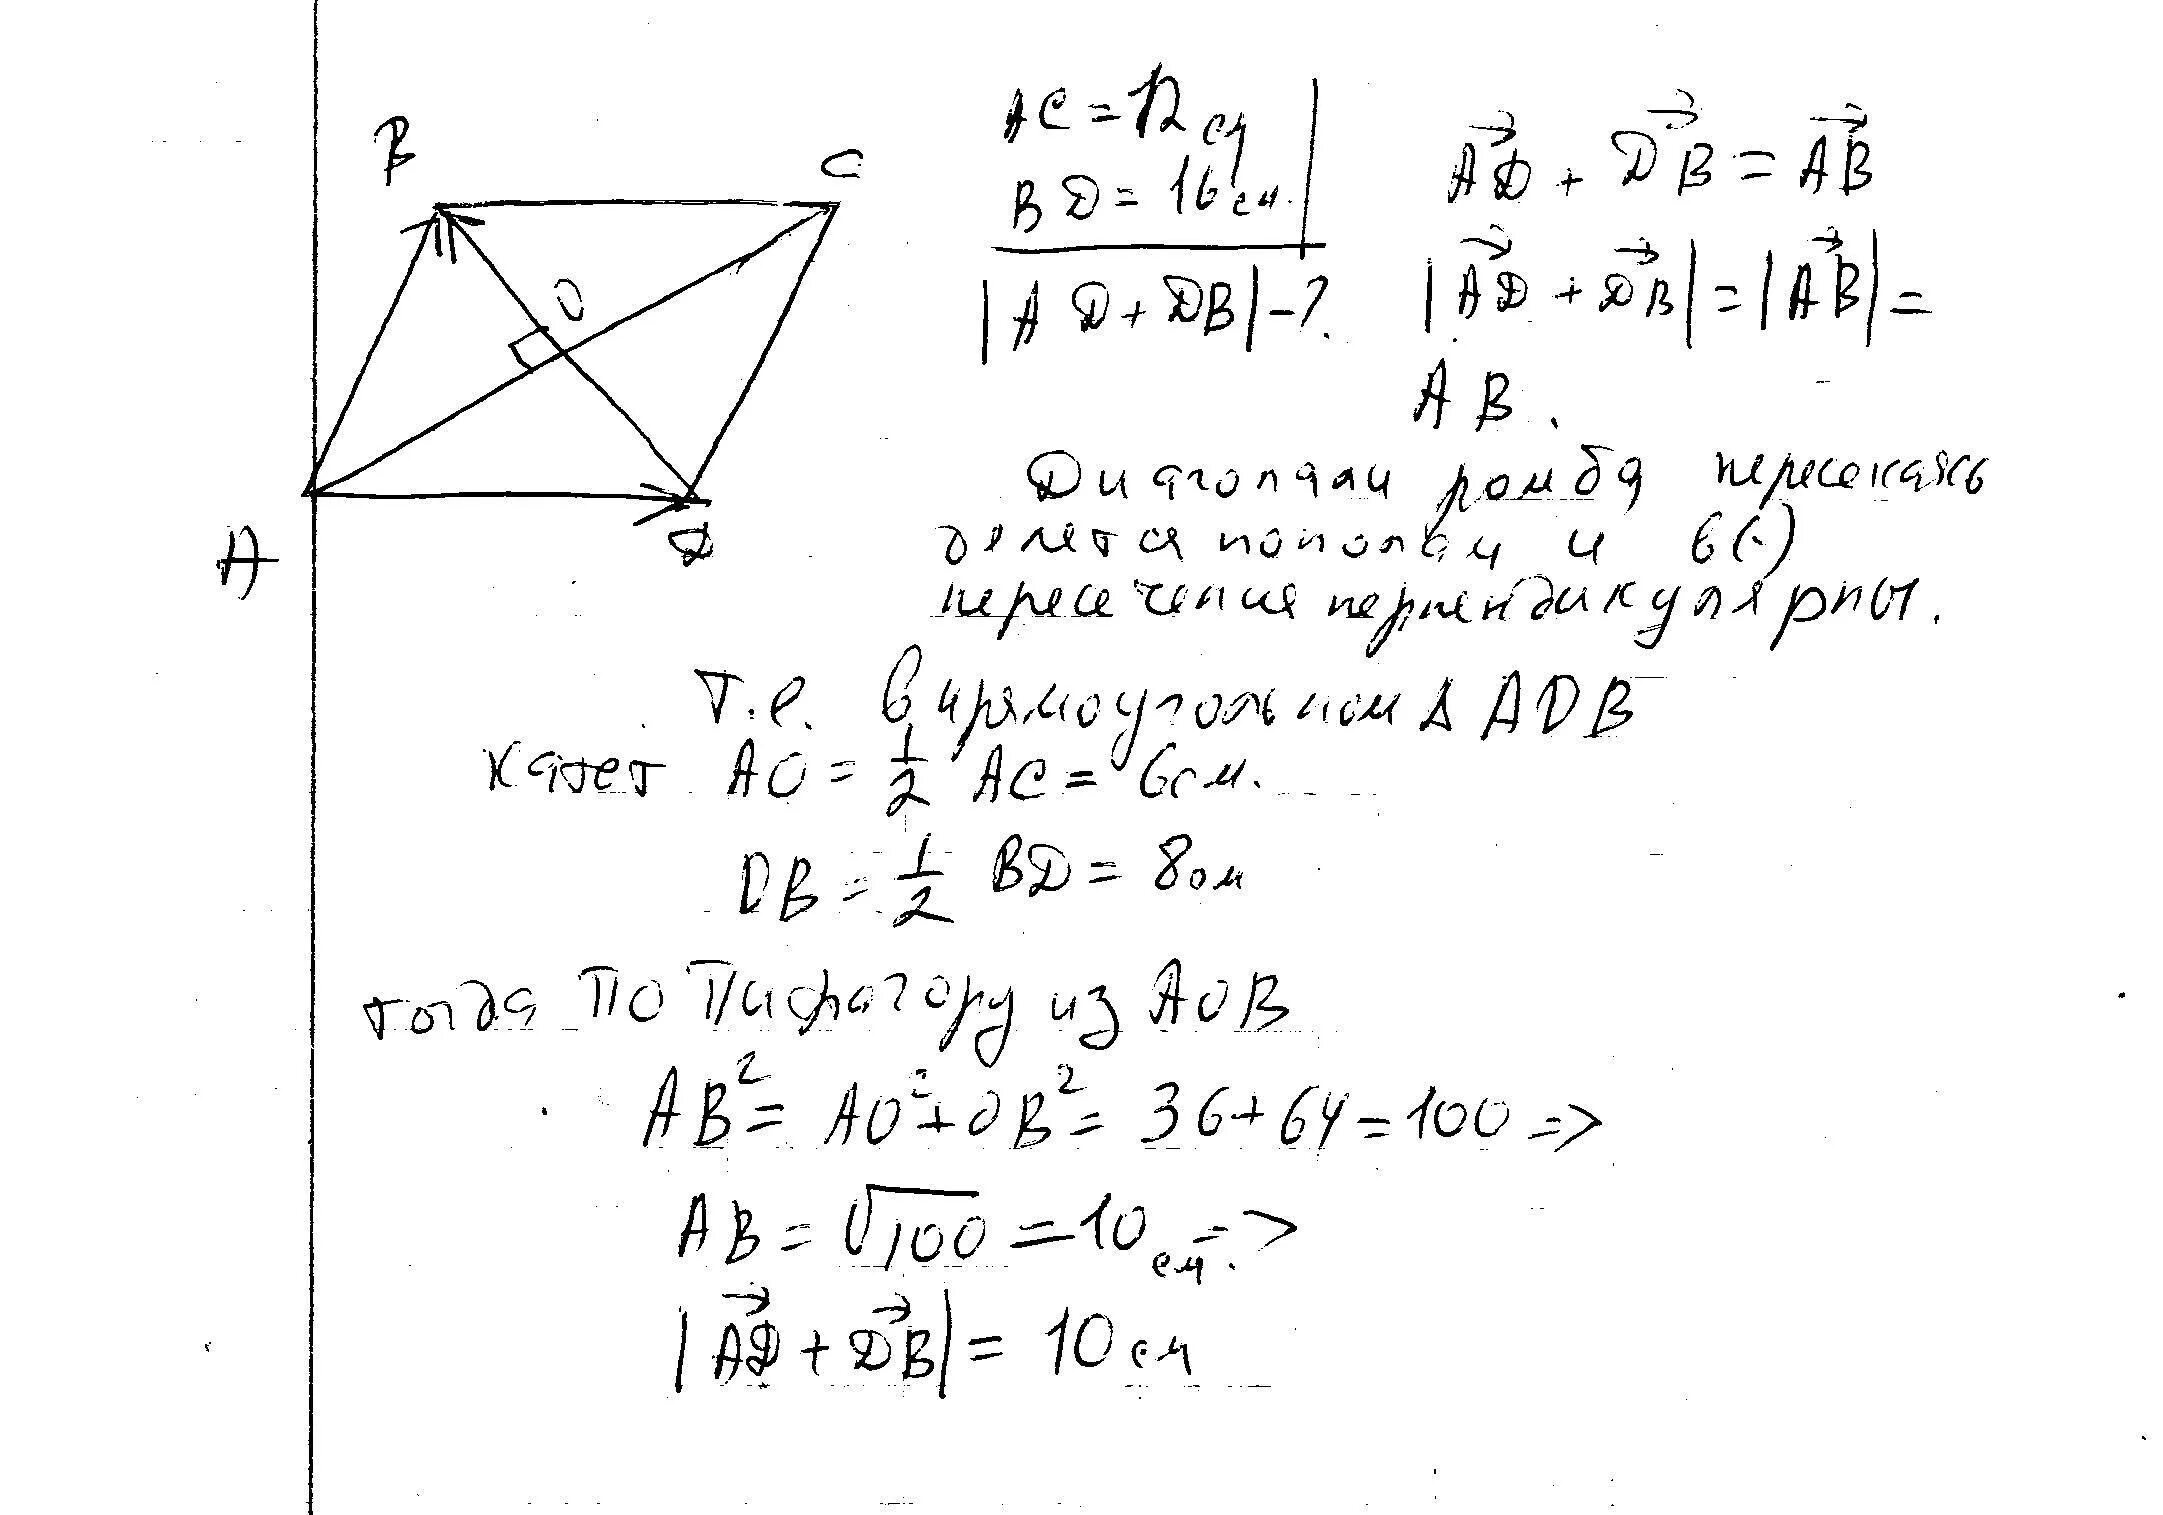 B
C
O
A
D
AC = 12 см
BD = 16 см.
|AD + DB| - ?
→AD + →DB = →AB
|→AD + →DB| = |→AB| =
AB.
Диагонали ромба пересекаясь
делется пополам и в (·)
пересечения перпендикулярны.
т.е. в прямоугольном Δ AOB
катет AO = 1/2 AC = 6 см.
OB = 1/2 BD = 8 см
тогда по Пифагору из AOB
AB² = AO² + OB² = 36 + 64 = 100 =>
AB = √100 = 10 см. =>
|→AD + →DB| = 10 см